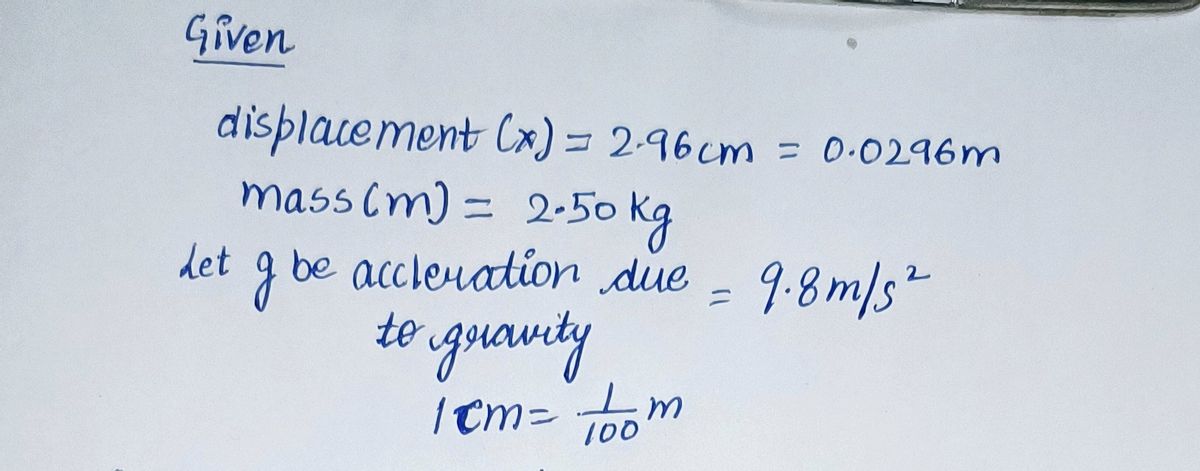 Given
displacement (x) = 2.96cm = 0.0296m
mass (m) = 2.50 kg
Let g be accleration due = 9.8m/s²
to gravity
1 cm = 1/100 m